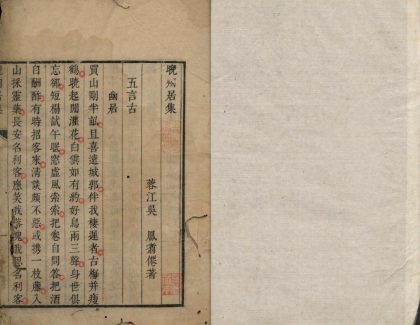 晚州居集
蓉江吳 鳳翥僊著
五言古
幽居
買山剛半畝且喜遠城郭伴我棲遲者古梅並瘦
鶴曉起閒灌花白雲如有約好鳥兩三聲身世俱
忘卻短榻試午眠窓虛風索索把卷自問答把酒
自酬酢有時招客來清談頗不惡或攜一枝藤入
山採靈藥長安名利客應笑我落魄我思名利客